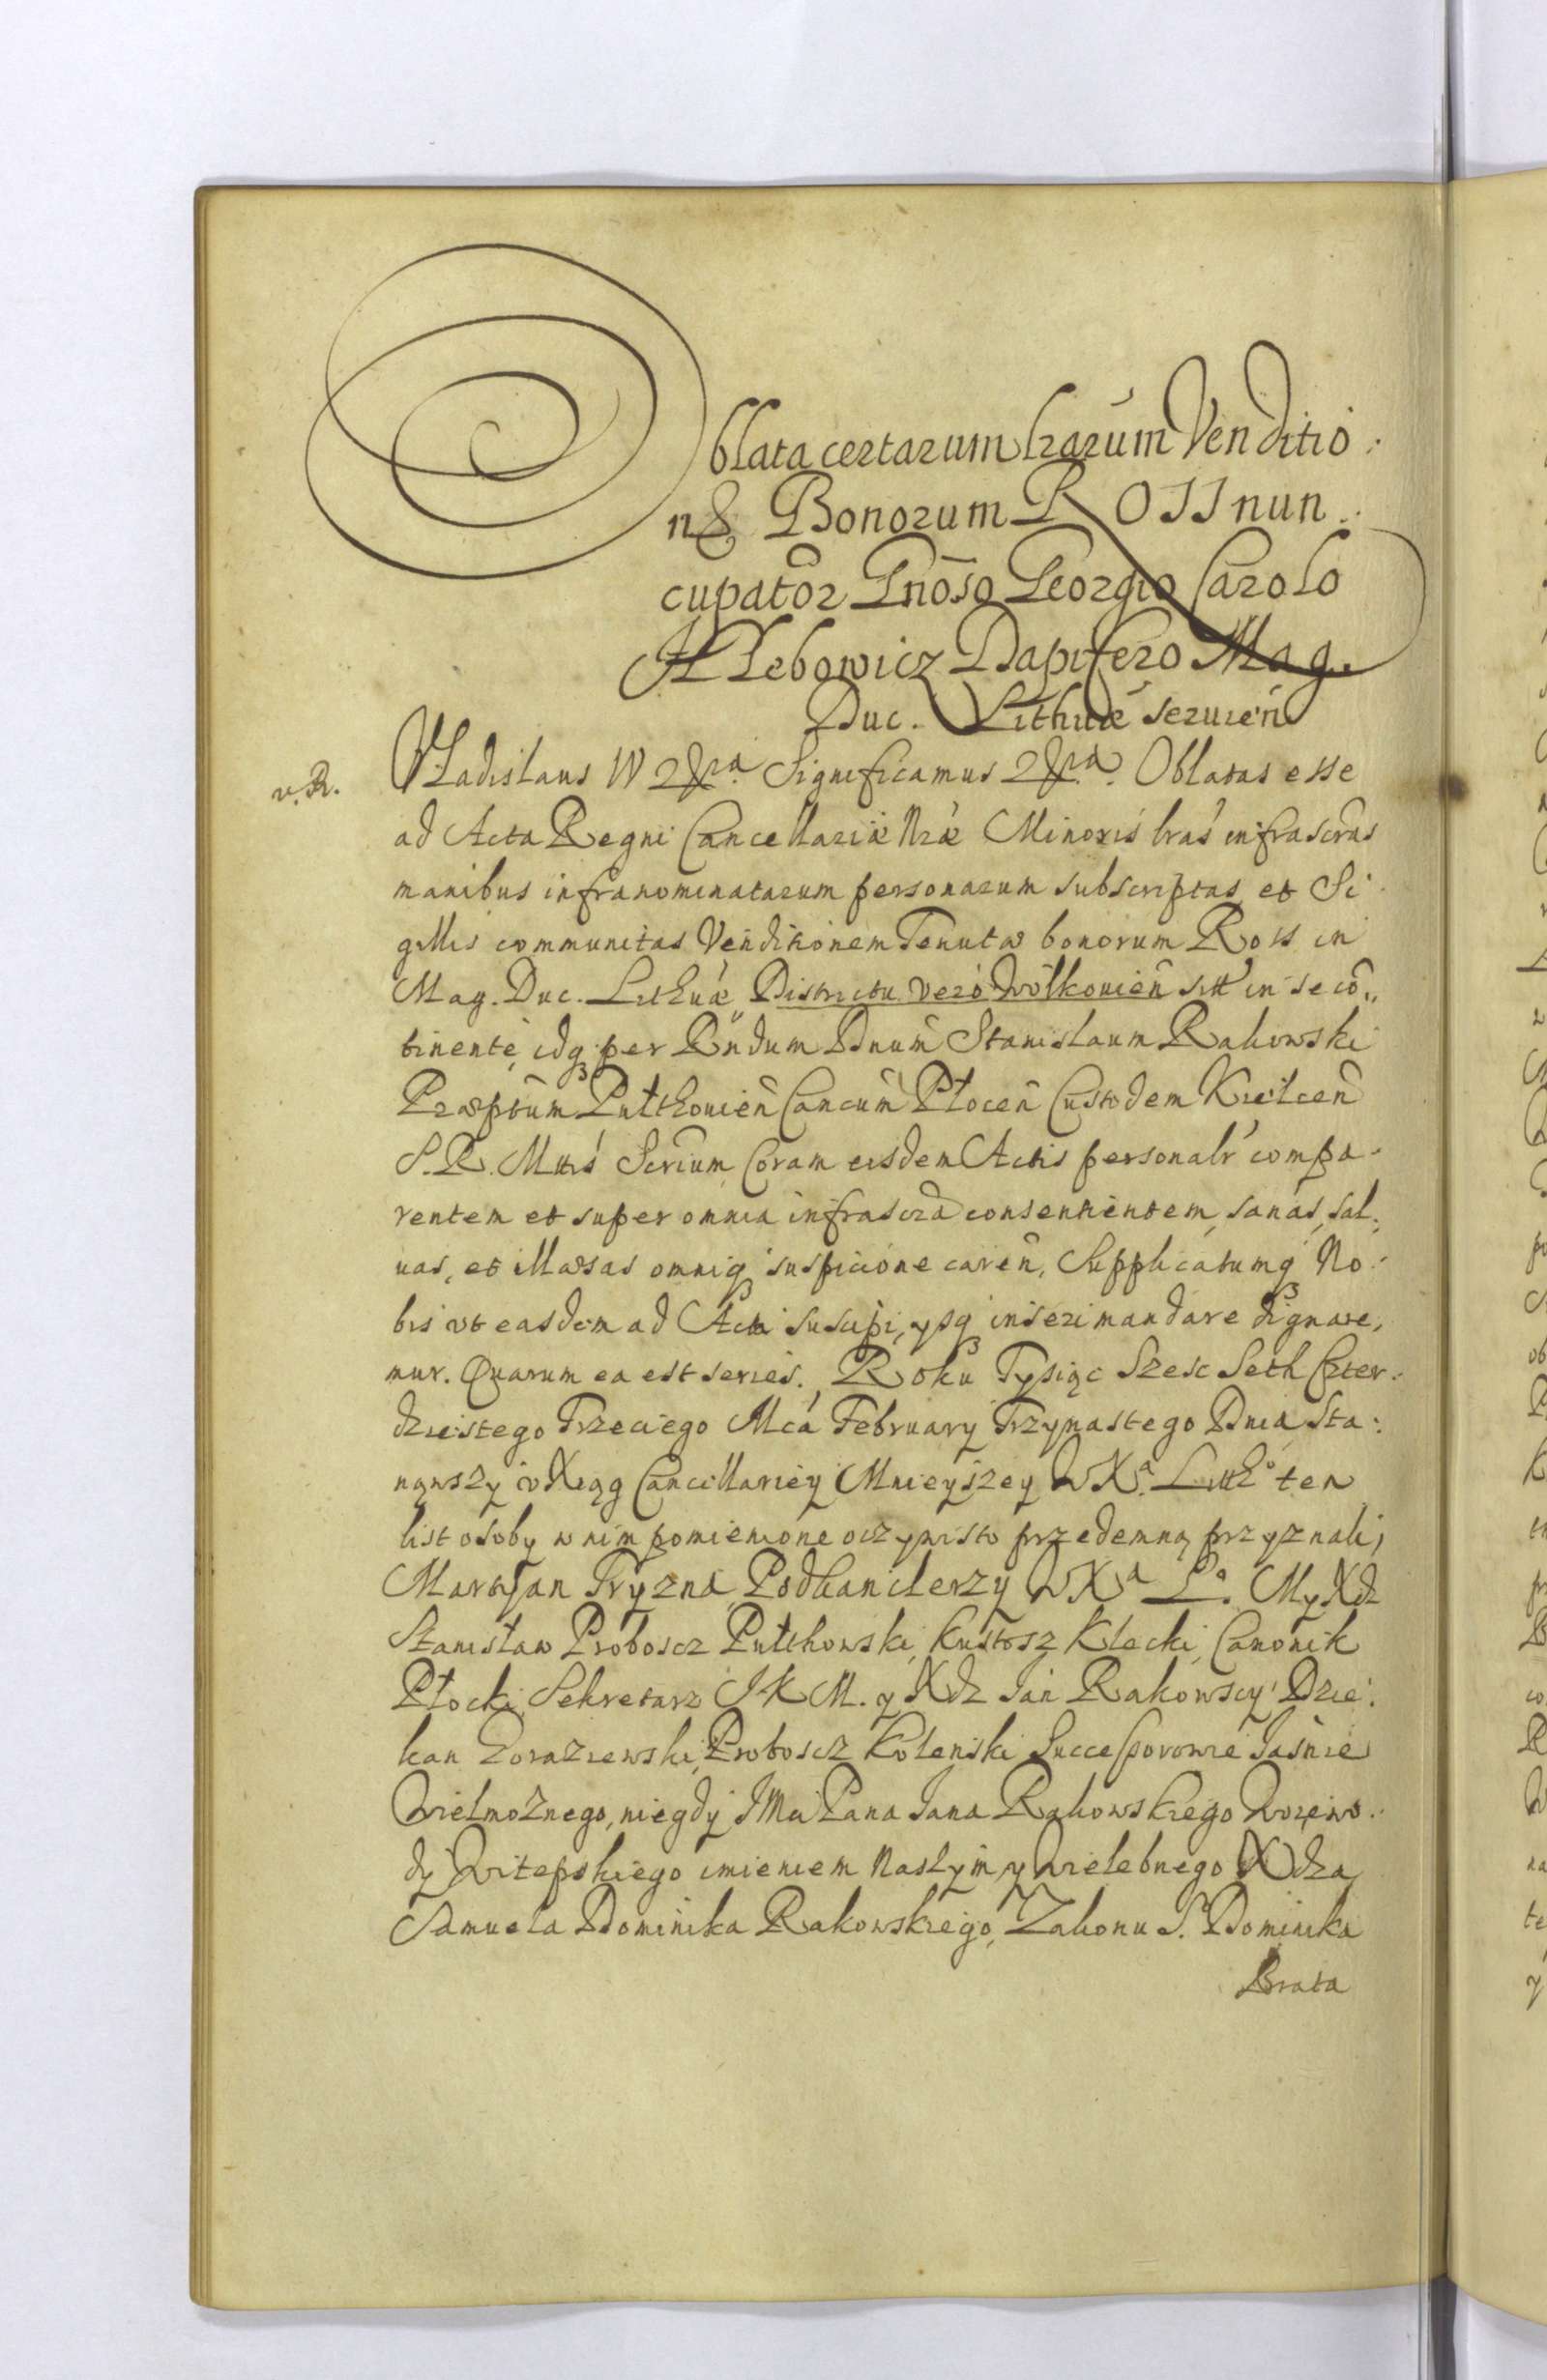 Oblata certarum lrarum Venditio:
nis Bonorum ROSS nun:
cupator Gnoso Georgio Carolo
Hlebowicz Dapifero Mag.
Duc. Lithuae seruien
v. R.
Vladislaus IV &ra Significamus &ra. Oblatas esse
ad Acta Regni Cancellariæ Nræ Minoris lras infrascras
manibus infranominatarum personarum subscriptas, et Si
gillis communitas Venditionem Tenutæ bonorum Ross in
Mag. Duc. Lithuæ, Districtu vero Wolkouien sitt in se co,,
tinente, idq per Rndum Dnum Stanislaum Rakowski
Præptum Pultouien Cancum Plocen Custodem Kielcen
S. R. Mttis Scrium Coram eisdem Actis personalr compa-
rentem et super omnia infrascra consentientem, sanas, sal:
uas, et illæsas omniq suspicione caren. Supplicatumq No:
bis vt easdem ad Acta suscipi, ysq inseri mandare dignare,
mur. Quarum ea est series. Roku Tysiąc Szesc Seth Czter:
dziestego Trzeciego Mca February Trzynastego Dnia, Sta:
nąwszy v Xiąg Cancellariey Mnieyszey WXa. Litto ten
list osoby w nim pomienione oczywisto przedemną przyznali,
Martian Tryzna, Podkanclerzy WXa Lo. My Xdz
Stanisław Proboscz Pułthowski, Kustosz Klecki, Canonik
Płocki, Sekretarz JKM. y Xdz Jan Rakowscy Dzie:
kan Zoraziewski, Proboscz Kolenski Successorowie Jaśnie
Wielmożnego, niegdy JMci Pana Jana Rakowskiego Woiewo:
dy Witepskiego imieniem naszym y Wielebnego Xdza
Samuela Dominika Rakowskiego, Zakonu S. Dominika
Brata